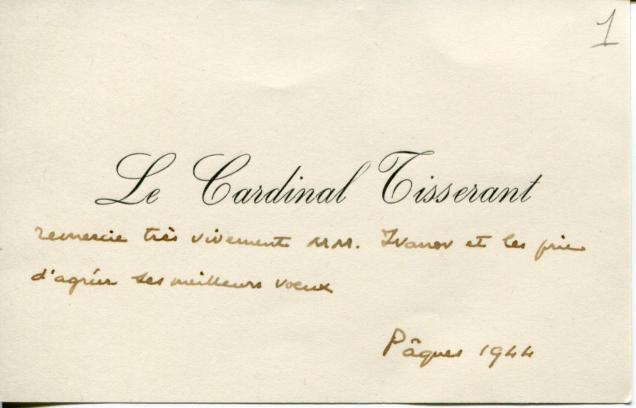 1
Le Cardinal Tisserant
remercie très vivement MM. Ivanov et les prie
d'agréer ses meilleurs voeux
Pâques 1944